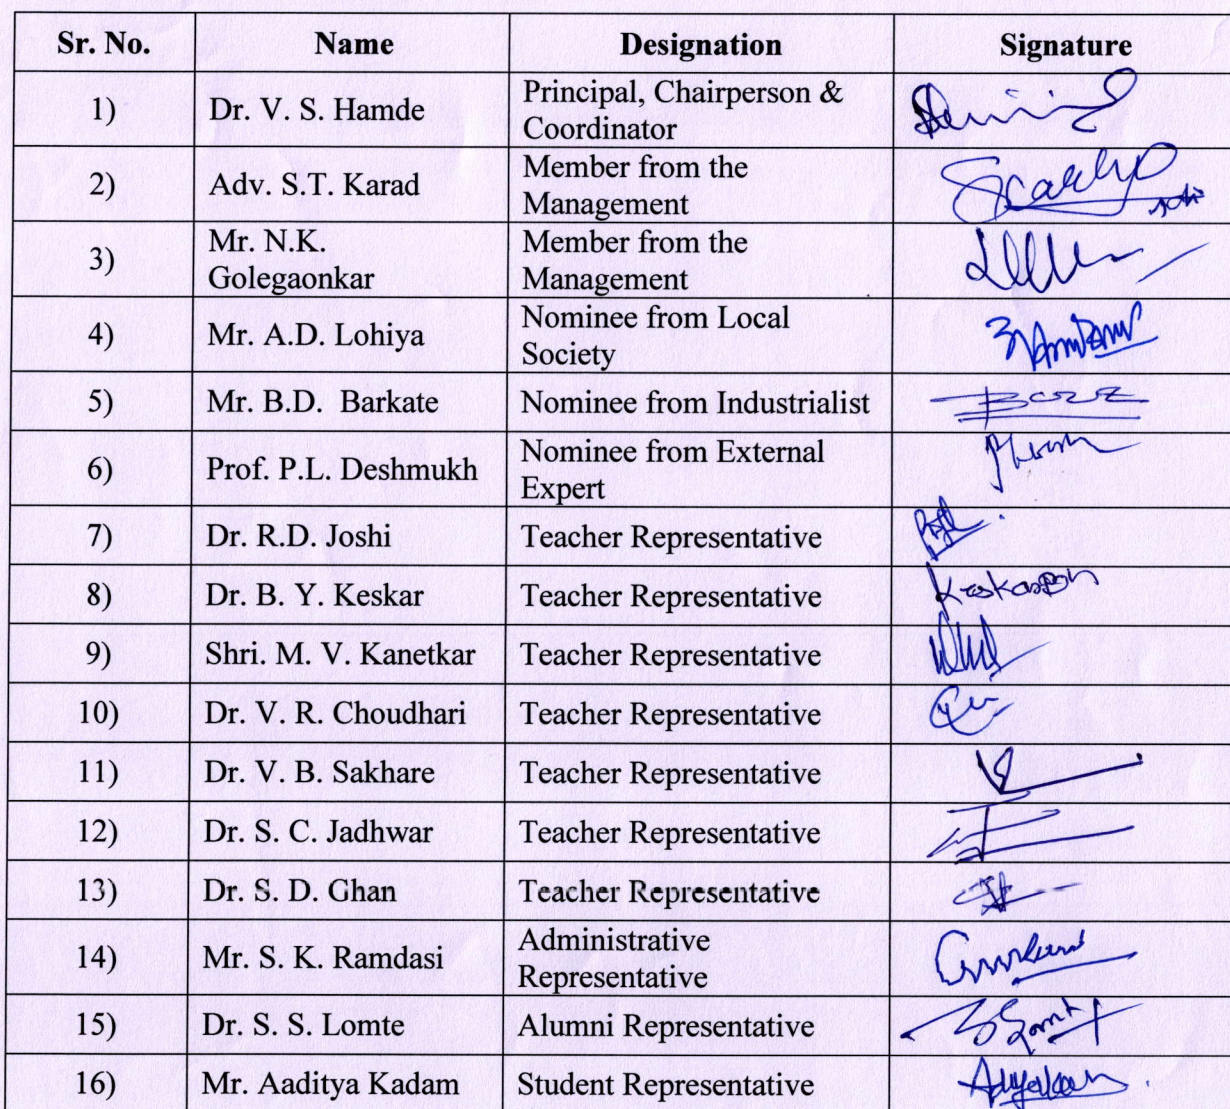 Sr. No. Name Designation Signature
1) Dr. V. S. Hamde Principal, Chairperson &
Coordinator
2) Adv. S.T. Karad Member from the
Management
3) Mr. N.K.
Golegaonkar Member from the
Management
4) Mr. A.D. Lohiya Nominee from Local
Society
5) Mr. B.D. Barkate Nominee from Industrialist
6) Prof. P.L. Deshmukh Nominee from External
Expert
7) Dr. R.D. Joshi Teacher Representative
8) Dr. B. Y. Keskar Teacher Representative
9) Shri. M. V. Kanetkar Teacher Representative
10) Dr. V. R. Choudhari Teacher Representative
11) Dr. V. B. Sakhare Teacher Representative
12) Dr. S. C. Jadhwar Teacher Representative
13) Dr. S. D. Ghan Teacher Representative
14) Mr. S. K. Ramdasi Administrative
Representative
15) Dr. S. S. Lomte Alumni Representative
16) Mr. Aaditya Kadam Student Representative